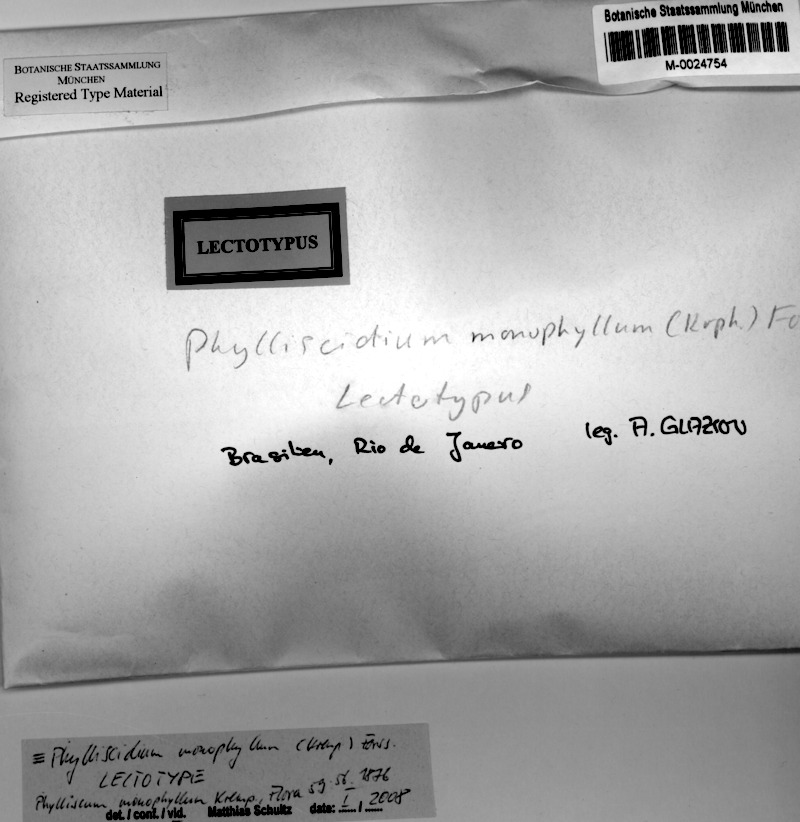 Botanische Staatssammlung München
M-0024754
BOTANISCHE STAATSSAMMLUNG
MÜNCHEN
Registered Type Material
LECTOTYPUS
Phylliscidium monophyllum (Krph.) Fo
Lectotypus
Brasilien, Rio de Janeiro leg. A. GLAZIOU
≡ Phylliscidium monophyllum (Kremp) Forss.
LECTOTYPE
Phylliscum monophyllum Kremp, Flora 59: 1876
det. / conf. / vid. Matthias Schultz date: I / 2008